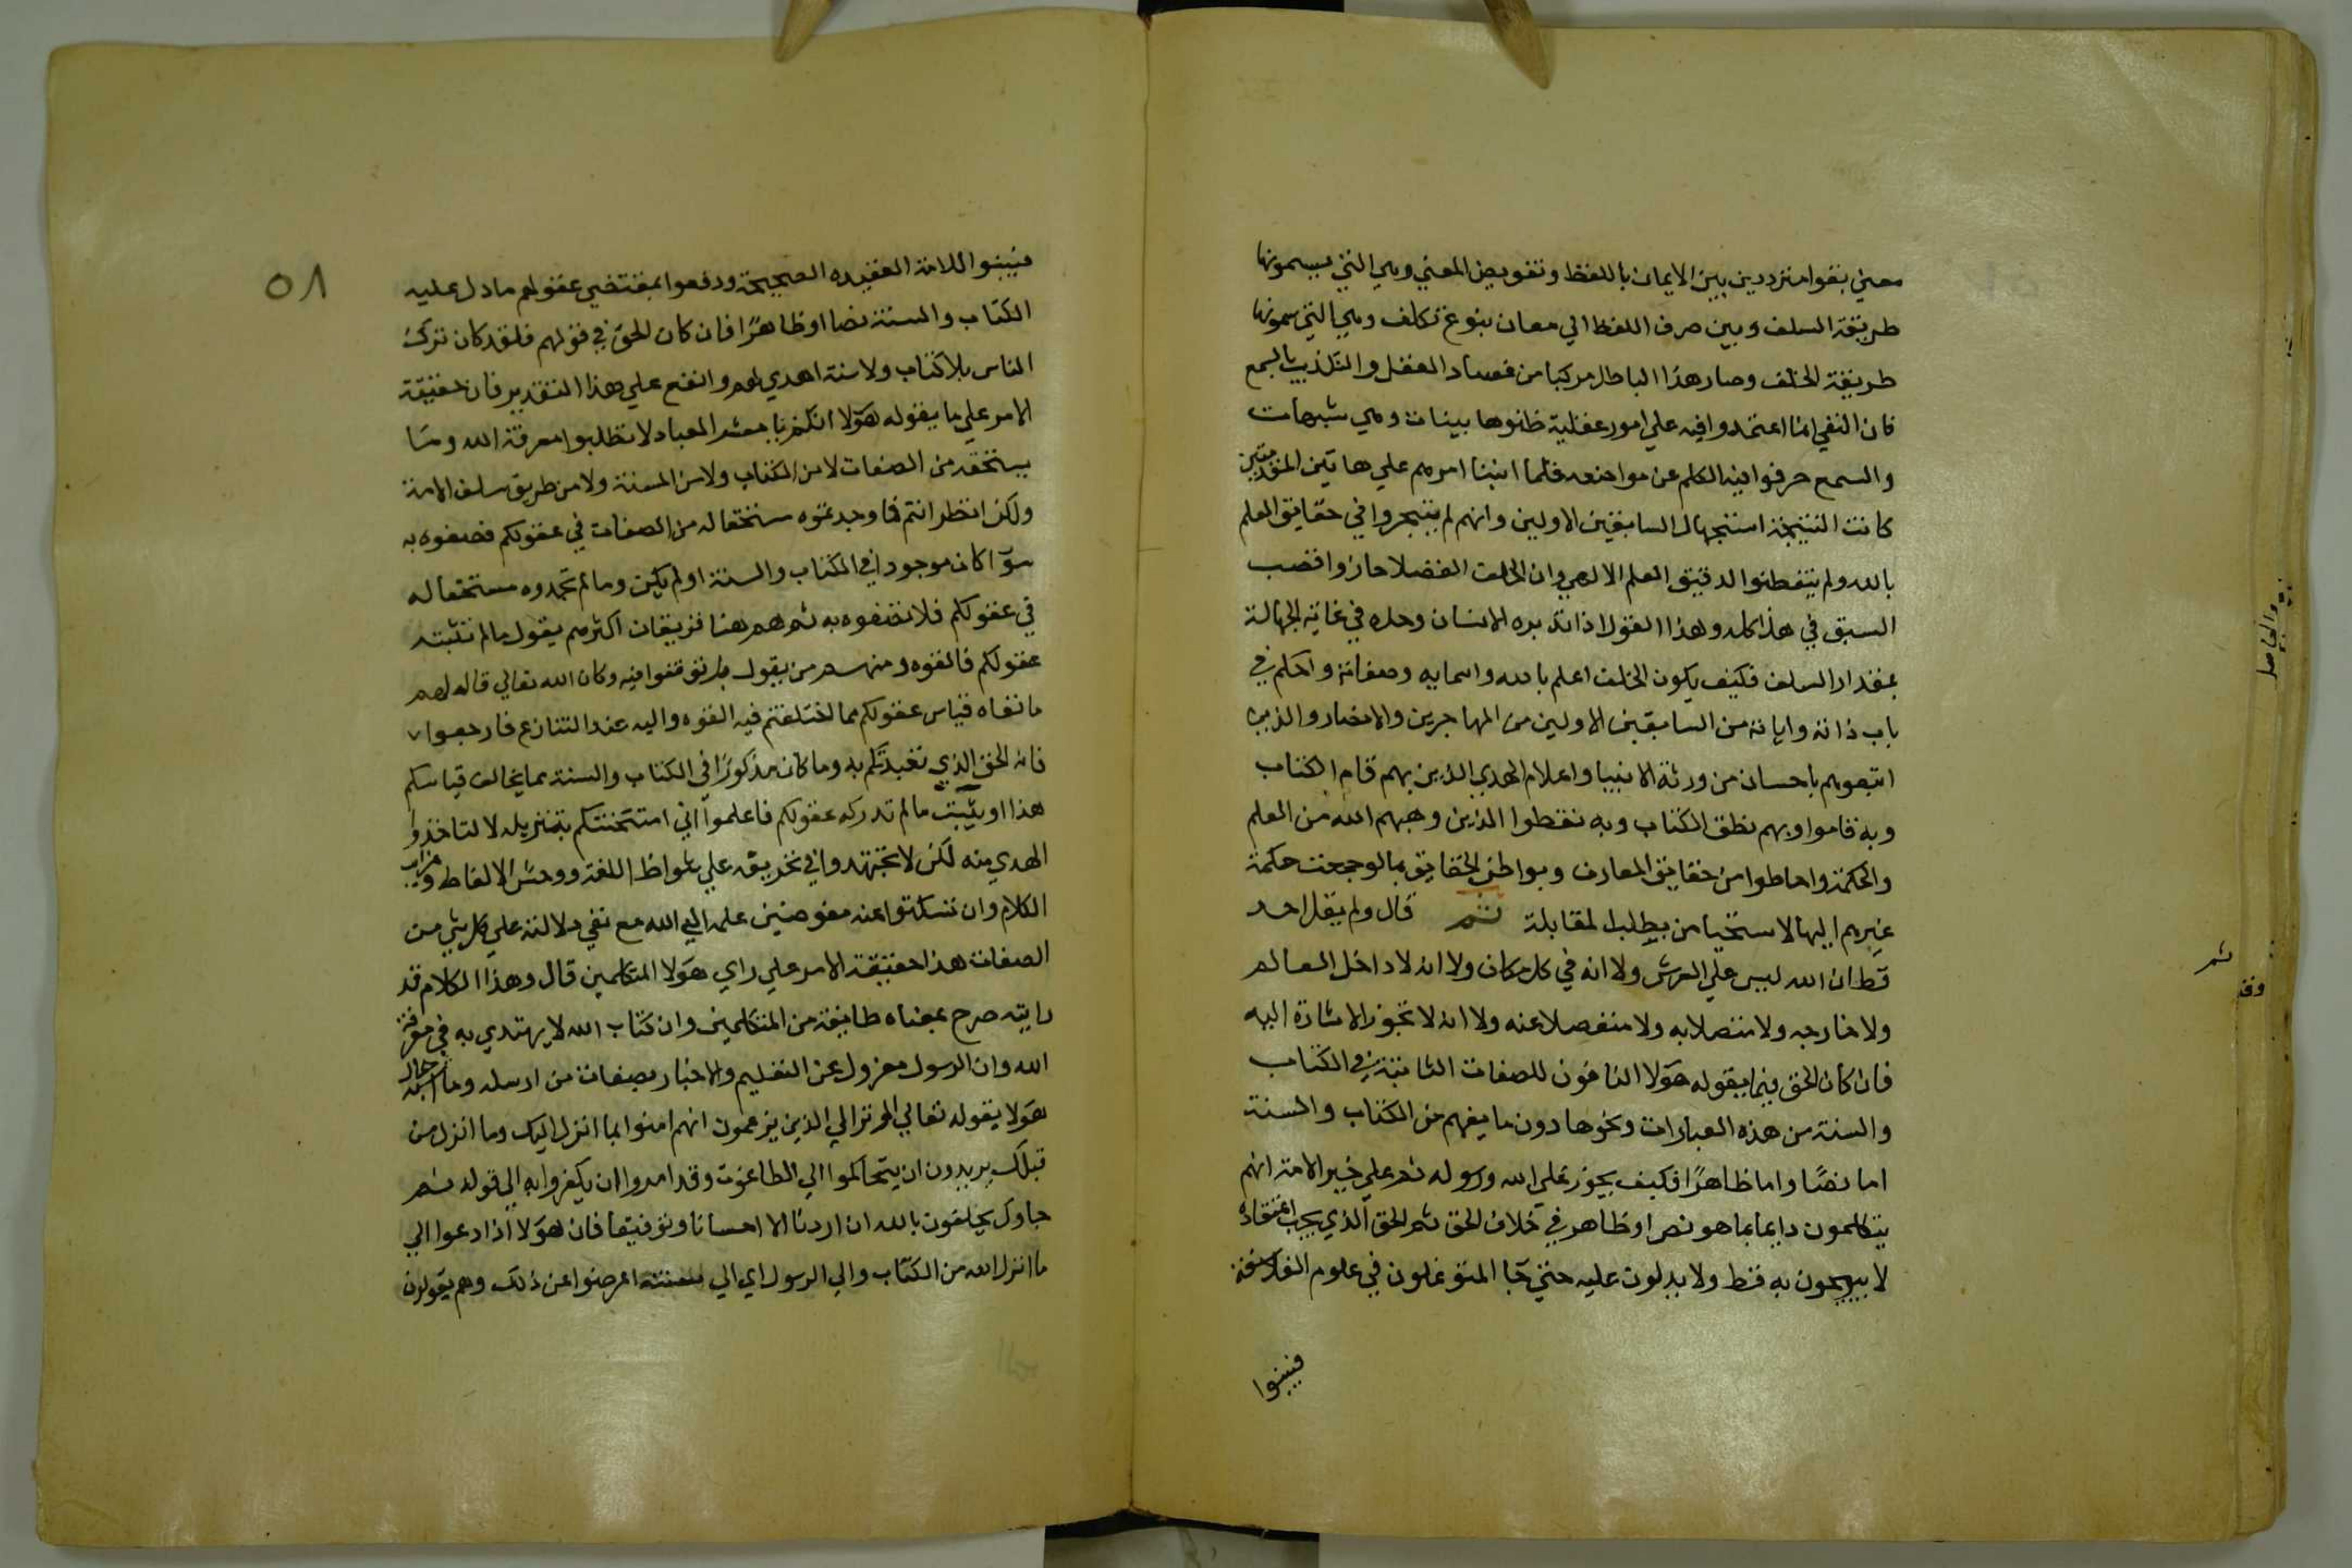 معني بقوا مترددين بين الايمان باللفظ وتفويض المعني وهي التي يسمونها
طريقة السلف وبين صرف اللفظ الي معان بنوع تكلف وهي التي يسمونها
طريقة الخلف وصار هذا الباطل مركبا من فساد العقل والتكذيب بالسمع
فان النفي انما اعتمدوا فيه علي امور عقلية ظنوها بينات وهي شبهات
والسمع حرفوا فيه الكلم عن مواضعه فلما انبنا امرهم علي هاتين المقدمتين
كانت النتيجة استجهال السابقين الاولين وانهم لم يتبحروا في حقايق العلم
بالله ولم يتفطنوا لدقيق العلم الالهي وان الخلف الفضلا حازوا قصب
السبق في هذا كله وهذا القول اذا تدبره الانسان وجده في غاية الجهالة
بمقدار السلف فكيف يكون الخلف اعلم بالله واسمايه وصفاته واحكم في
باب ذاته واياته من السابقين الاولين من المهاجرين والانصار والذين
اتبعوهم باحسان من ورثة الانبيا واعلام الهدي الذين بهم قام الكتاب
وبه قاموا وبهم نطق الكتاب وبه نقطوا الذين وهبهم الله من العلم
والحكمة واحاطوا من حقايق المعارف وبواطن الحقايق بما لو جمعت حكمة
غيرهم اليها لاستحيا من يطلب المقابلة ثم قال ولم يقل احد
قط ان الله ليس علي العرش ولا انه في كل مكان ولا انه لا داخل العالم
ولا خارجه ولا متصلا به ولا منفصلا عنه ولا انه لا تجوز الاشارة اليه
فان كان الحق فيما يقوله هولا النافون للصفات الثابتة في الكتاب
والسنة من هذه العبارات ونحوها دون ما يفهم من الكتاب والسنة
اما نصًا واما ظاهرًا فكيف يجوز علي الله ورسوله ثم علي خير الامة انهم
يتكلمون دايما بما هو نص او ظاهر في خلاف الحق ثم الحق الذي يجب اعتقاده
لا يبوحون به قط ولا يدلون عليه حتي جا المتوغلون في علوم الفلاسفة
فيبينوا
٥٨
فيبينوا للامة العقيده الصحيحة ودفعوا بمقتضي عقولهم ما دل عليه
الكتاب والسنة نصا او ظاهرًا فان كان الحق في قولهم فلقد كان ترك
الناس بلا كتاب ولا سنة اهدي لهم وانفع علي هذا التقدير فان حقيقة
الامر علي ما يقوله هولا انكم يا معشر العباد لا تطلبوا معرفة الله وما
يستحقه من الصفات لا من الكتاب ولا من السنة ولا من طريق سلف الامة
ولكن انظر انتم فما وجدتموه مستحقا له من الصفات في عقولكم فصفوه به
سوآ كان موجودا في الكتاب والسنة او لم يكن وما لم تجدوه مستحقا له
في عقولكم فلا تصفوه به ثم هم هنا فريقان اكثرهم يقول ما لم تثبته
عقولكم فانفوه ومنهم من يقول بل توقفوا فيه وكان الله تعالي قال لهم
ما نفاه قياس عقولكم مما اختلفتم فيه انفوه واليه عند التنازع فارجعوا
فانه الحق الذي تعبدتكم به وما كان مذكورًا في الكتاب والسنة مما يخالف قياسكم
هذا او يثبت ما لم تدركه عقولكم فاعلموا اني امتحنتكم بتنزيله لا لتاخذوا
الهدي منه لكن لا تجتهدوا في تخريجه علي شواذ اللغة ووحش الالفاظ وغرايب
الكلام وان تسكتوا عنه مفوضين علمه الي الله مع نفي دلالته علي كل شي من
الصفات هذا حقيقة الامر علي راي هولا المتكلمين قال وهذا الكلام قد
رايته صرح بمعناه طايفة من المتكلمين وان كتاب الله لا يهتدي به في معرفة
الله وان الرسول معزول عن التعليم والاخبار بصفات من ارسله وما اشبه حال
هولا بقوله تعالي الم تر الي الذين يزعمون انهم امنوا بما انزل اليك وما انزل من
قبلك يريدون ان يتحاكموا الي الطاغوت وقد امروا ان يكفروا به الي قوله ثم
جاوك يحلفون بالله ان اردنا الا احسانا وتوفيقا فان هولا اذا دعوا الي
ما انزل الله من الكتاب والي الرسول اي الي سنته اعرضوا عن ذلك وهم يقولون